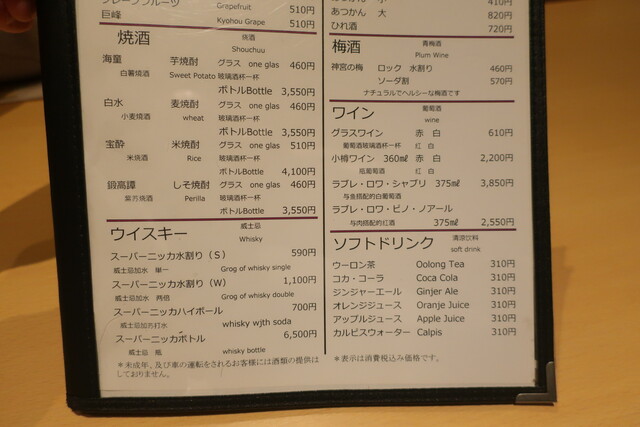 Grapefruit 510円
巨峰 510円
Kyohou Grape
焼酒 焼酒
Shouchuu
海童 芋焼酎 グラス one glas 460円
白薯燒酒 Sweet Potato 玻璃酒杯一杯
ボトルBottle 3,550円
白水 麦焼酎 グラス one glas 460円
小麦燒酒 wheat 玻璃酒杯一杯
ボトルBottle 3,550円
宝酔 米焼酎 グラス one glas 510円
米燒酒 Rice 玻璃酒杯一杯
ボトルBottle 4,100円
鍛高譚 しそ焼酎 グラス one glas 460円
紫苏燒酒 Perilla 玻璃酒杯一杯
ボトルBottle 3,550円
ウイスキー 威士忌
Whisky
スーパーニッカ水割り（S） 590円
威士忌加水 単一 Grog of whisky single
スーパーニッカ水割り（W） 1,100円
威士忌加水 两倍 Grog of whisky double
スーパーニッカハイボール 700円
威士忌加苏打水 whisky wjth soda
スーパーニッカボトル 6,500円
威士忌 瓶 whisky bottle
＊未成年、及び車の運転をされるお客様には酒類の提供は
しておりません。
410円
あつかん 大 820円
ひれ酒 720円
梅酒 青梅酒
Plum Wine
神宮の梅 ロック 水割り 460円
ソーダ割 570円
ナチュラルでヘルシーな梅酒です
ワイン 葡萄酒
wine
グラスワイン 赤 白 610円
葡萄酒玻璃酒杯一杯 红 白
小樽ワイン 360㎖ 赤 白 2,200円
瓶葡萄酒 红 白
ラブレ・ロワ・シャブリ 375㎖ 3,850円
与鱼搭配的白葡萄酒
ラブレ・ロワ・ピノ・ノアール
与肉搭配的红酒 375㎖ 2,550円
ソフトドリンク 清凉饮料
soft drink
ウーロン茶 Oolong Tea 310円
コカ・コーラ Coca Cola 310円
ジンジャーエール Ginjer Ale 310円
オレンジジュース Oranje Juice 310円
アップルジュース Apple Juice 310円
カルピスウォーター Calpis 310円
＊表示は消費税込み価格です。